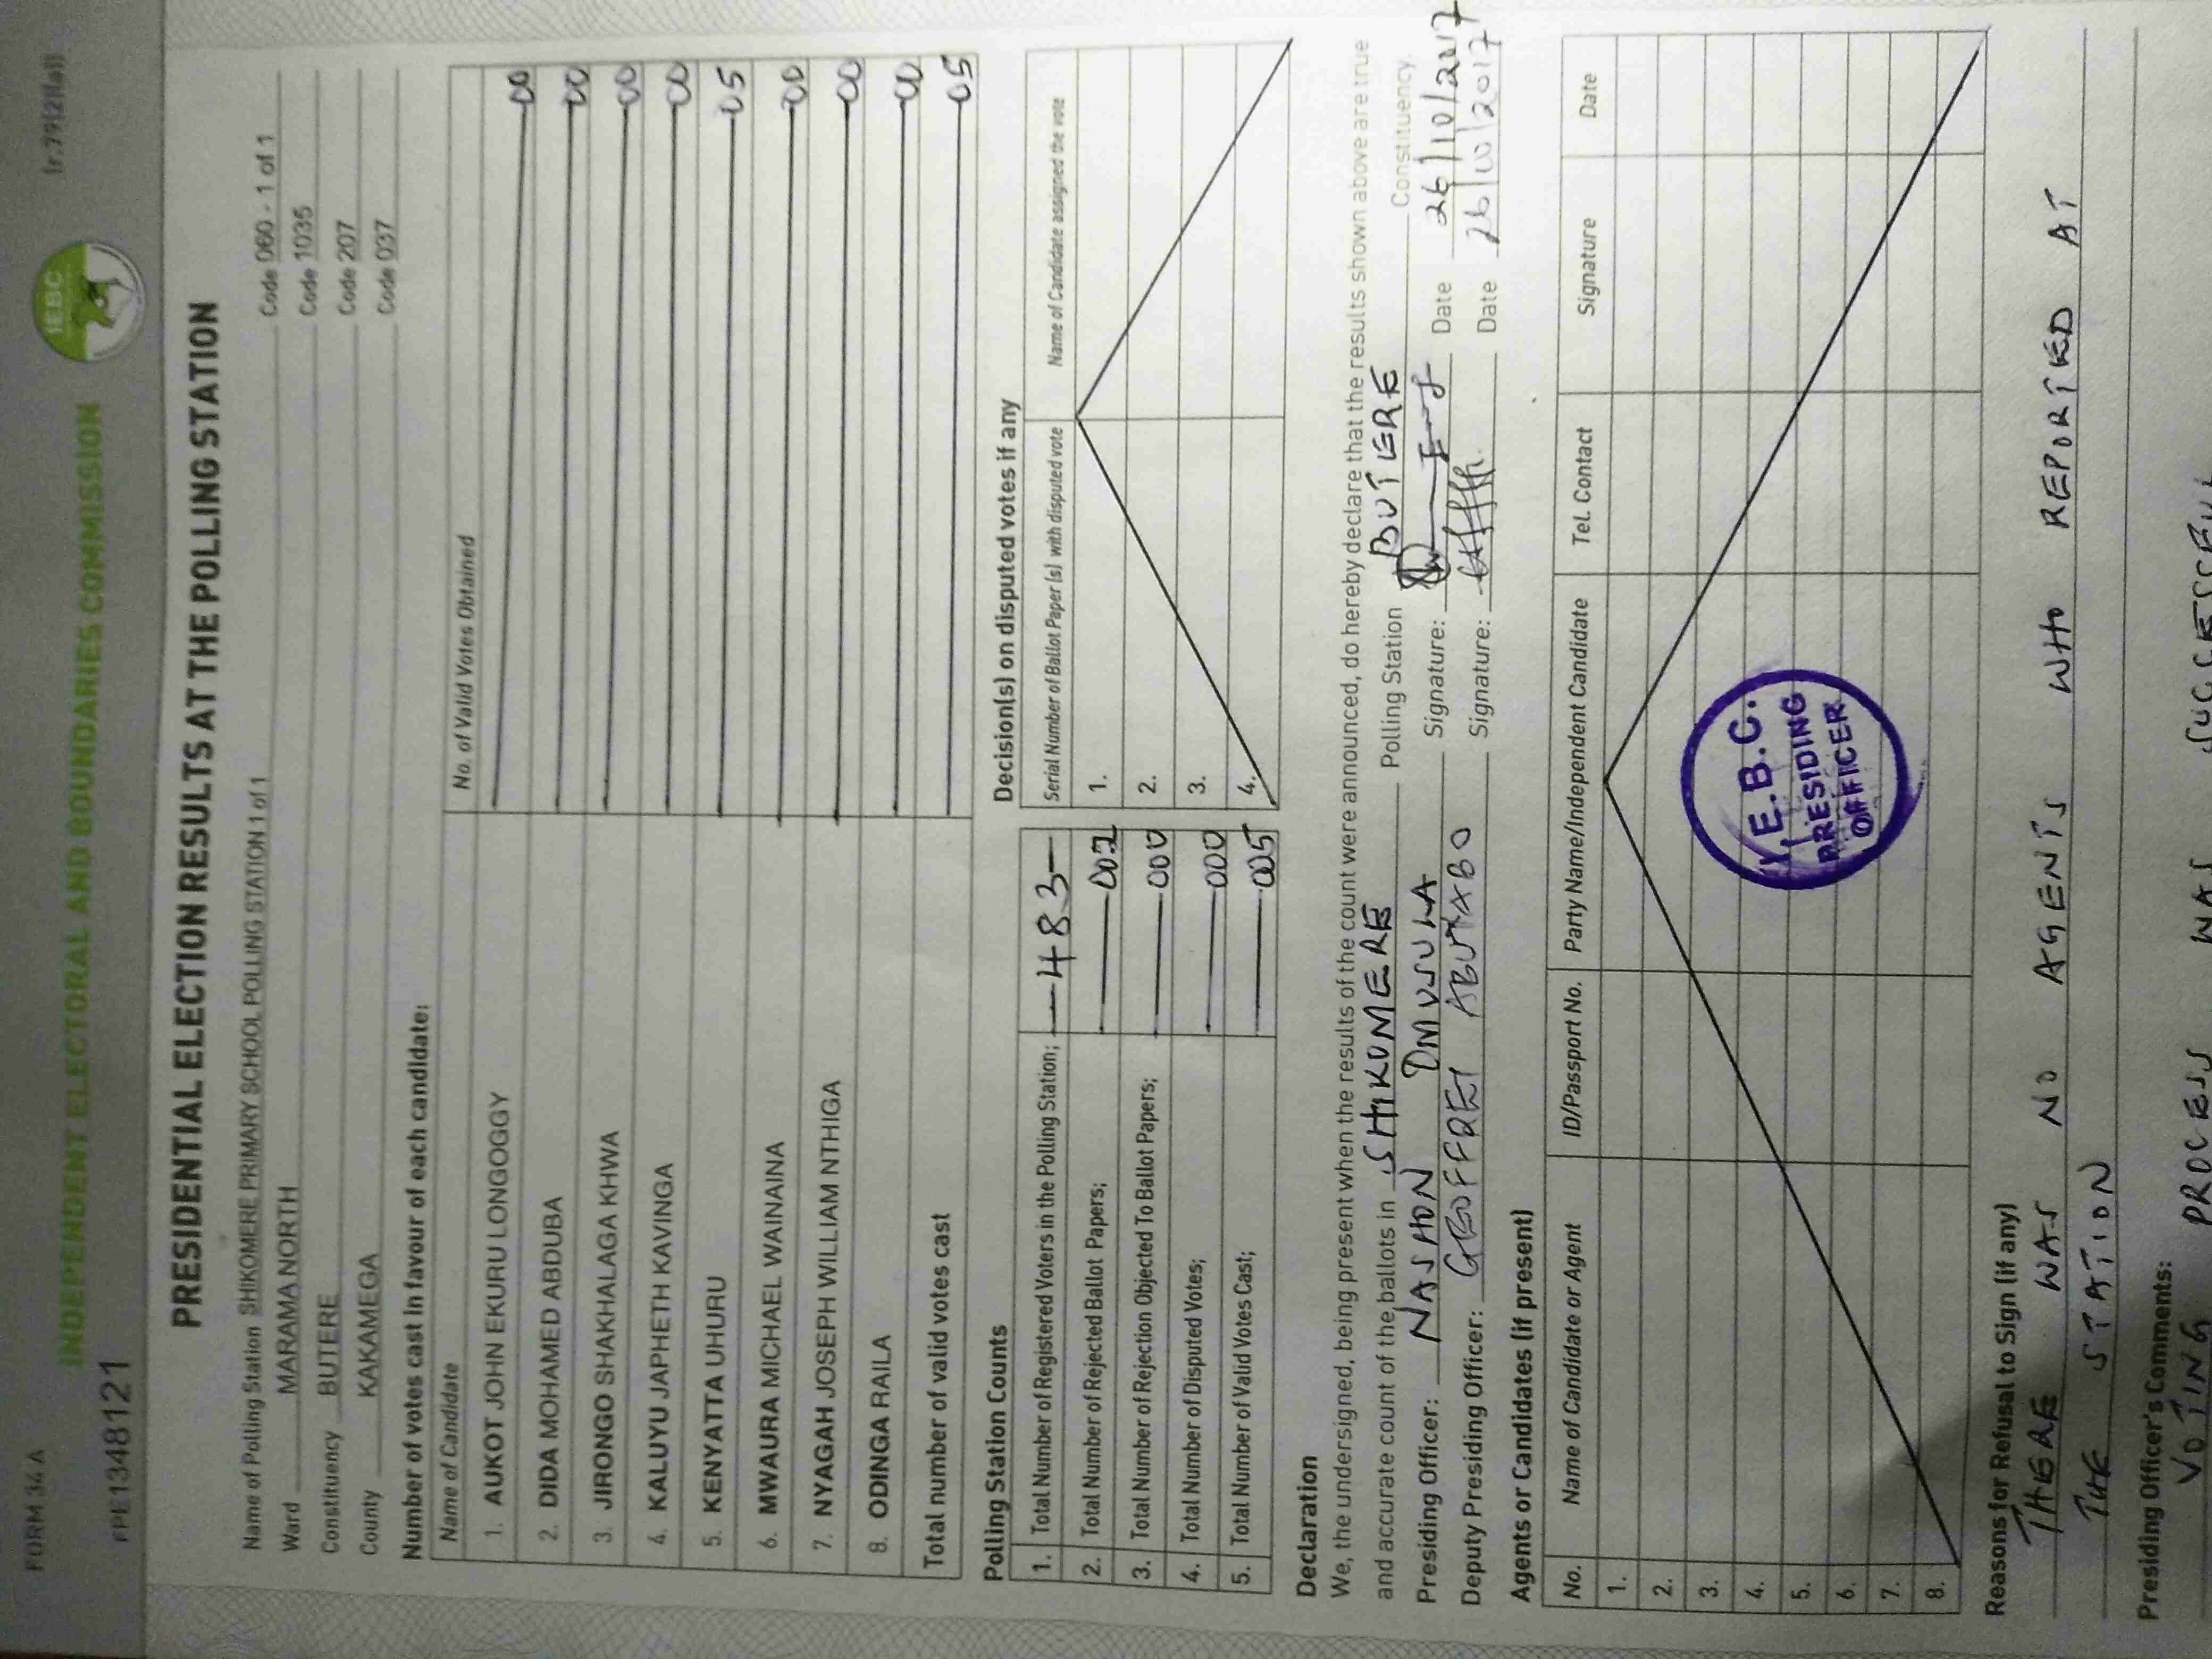 FORM 34 A
(r.79(2)(a))
IEBC
INDEPENDENT ELECTORAL AND BOUNDARIES COMMISSION
PPE1348121
PRESIDENTIAL ELECTION RESULTS AT THE POLLING STATION
Name of Polling Station SHIKOMERE PRIMARY SCHOOL POLLING STATION 1 of 1 Code 060 - 1 of 1
Ward MARAMA NORTH Code 1035
Constituency BUTERE Code 207
County KAKAMEGA Code 037
Number of votes cast in favour of each candidate:
Name of Candidate No. of Valid Votes Obtained
1. AUKOT JOHN EKURU LONGOGGY 00
2. DIDA MOHAMED ABDUBA 00
3. JIRONGO SHAKHALAGA KHWA 00
4. KALUYU JAPHETH KAVINGA 00
5. KENYATTA UHURU 05
6. MWAURA MICHAEL WAINAINA 00
7. NYAGAH JOSEPH WILLIAM NTHIGA 00
8. ODINGA RAILA 00
Total number of valid votes cast 05
Polling Station Counts
1. Total Number of Registered Voters in the Polling Station; 483
2. Total Number of Rejected Ballot Papers; 002
3. Total Number of Rejection Objected To Ballot Papers; 000
4. Total Number of Disputed Votes; 000
5. Total Number of Valid Votes Cast; 005
Decision(s) on disputed votes if any
Serial Number of Ballot Paper (s) with disputed vote Name of Candidate assigned the vote
1.
2.
3.
4.
Declaration
We, the undersigned, being present when the results of the count were announced, do hereby declare that the results shown above are true
and accurate count of the ballots in SHIKOMERE Polling Station BUTERE Constituency.
Presiding Officer: NASHON Signature: Date 26/10/2017
Deputy Presiding Officer: GEOFFREY Signature: Date 26/10/2017
Agents or Candidates (if present)
No. Name of Candidate or Agent ID/Passport No. Party Name/Independent Candidate Tel. Contact Signature Date
1.
2.
3.
4.
5.
6.
7.
8.
I.E.B.C.
PRESIDING
OFFICER
Reasons for Refusal to Sign (if any)
THERE WAS NO AGENTS WHO REPORTED AT
THE STATION
Presiding Officer's Comments:
VOTING PROCESS WAS SUCCESSFUL